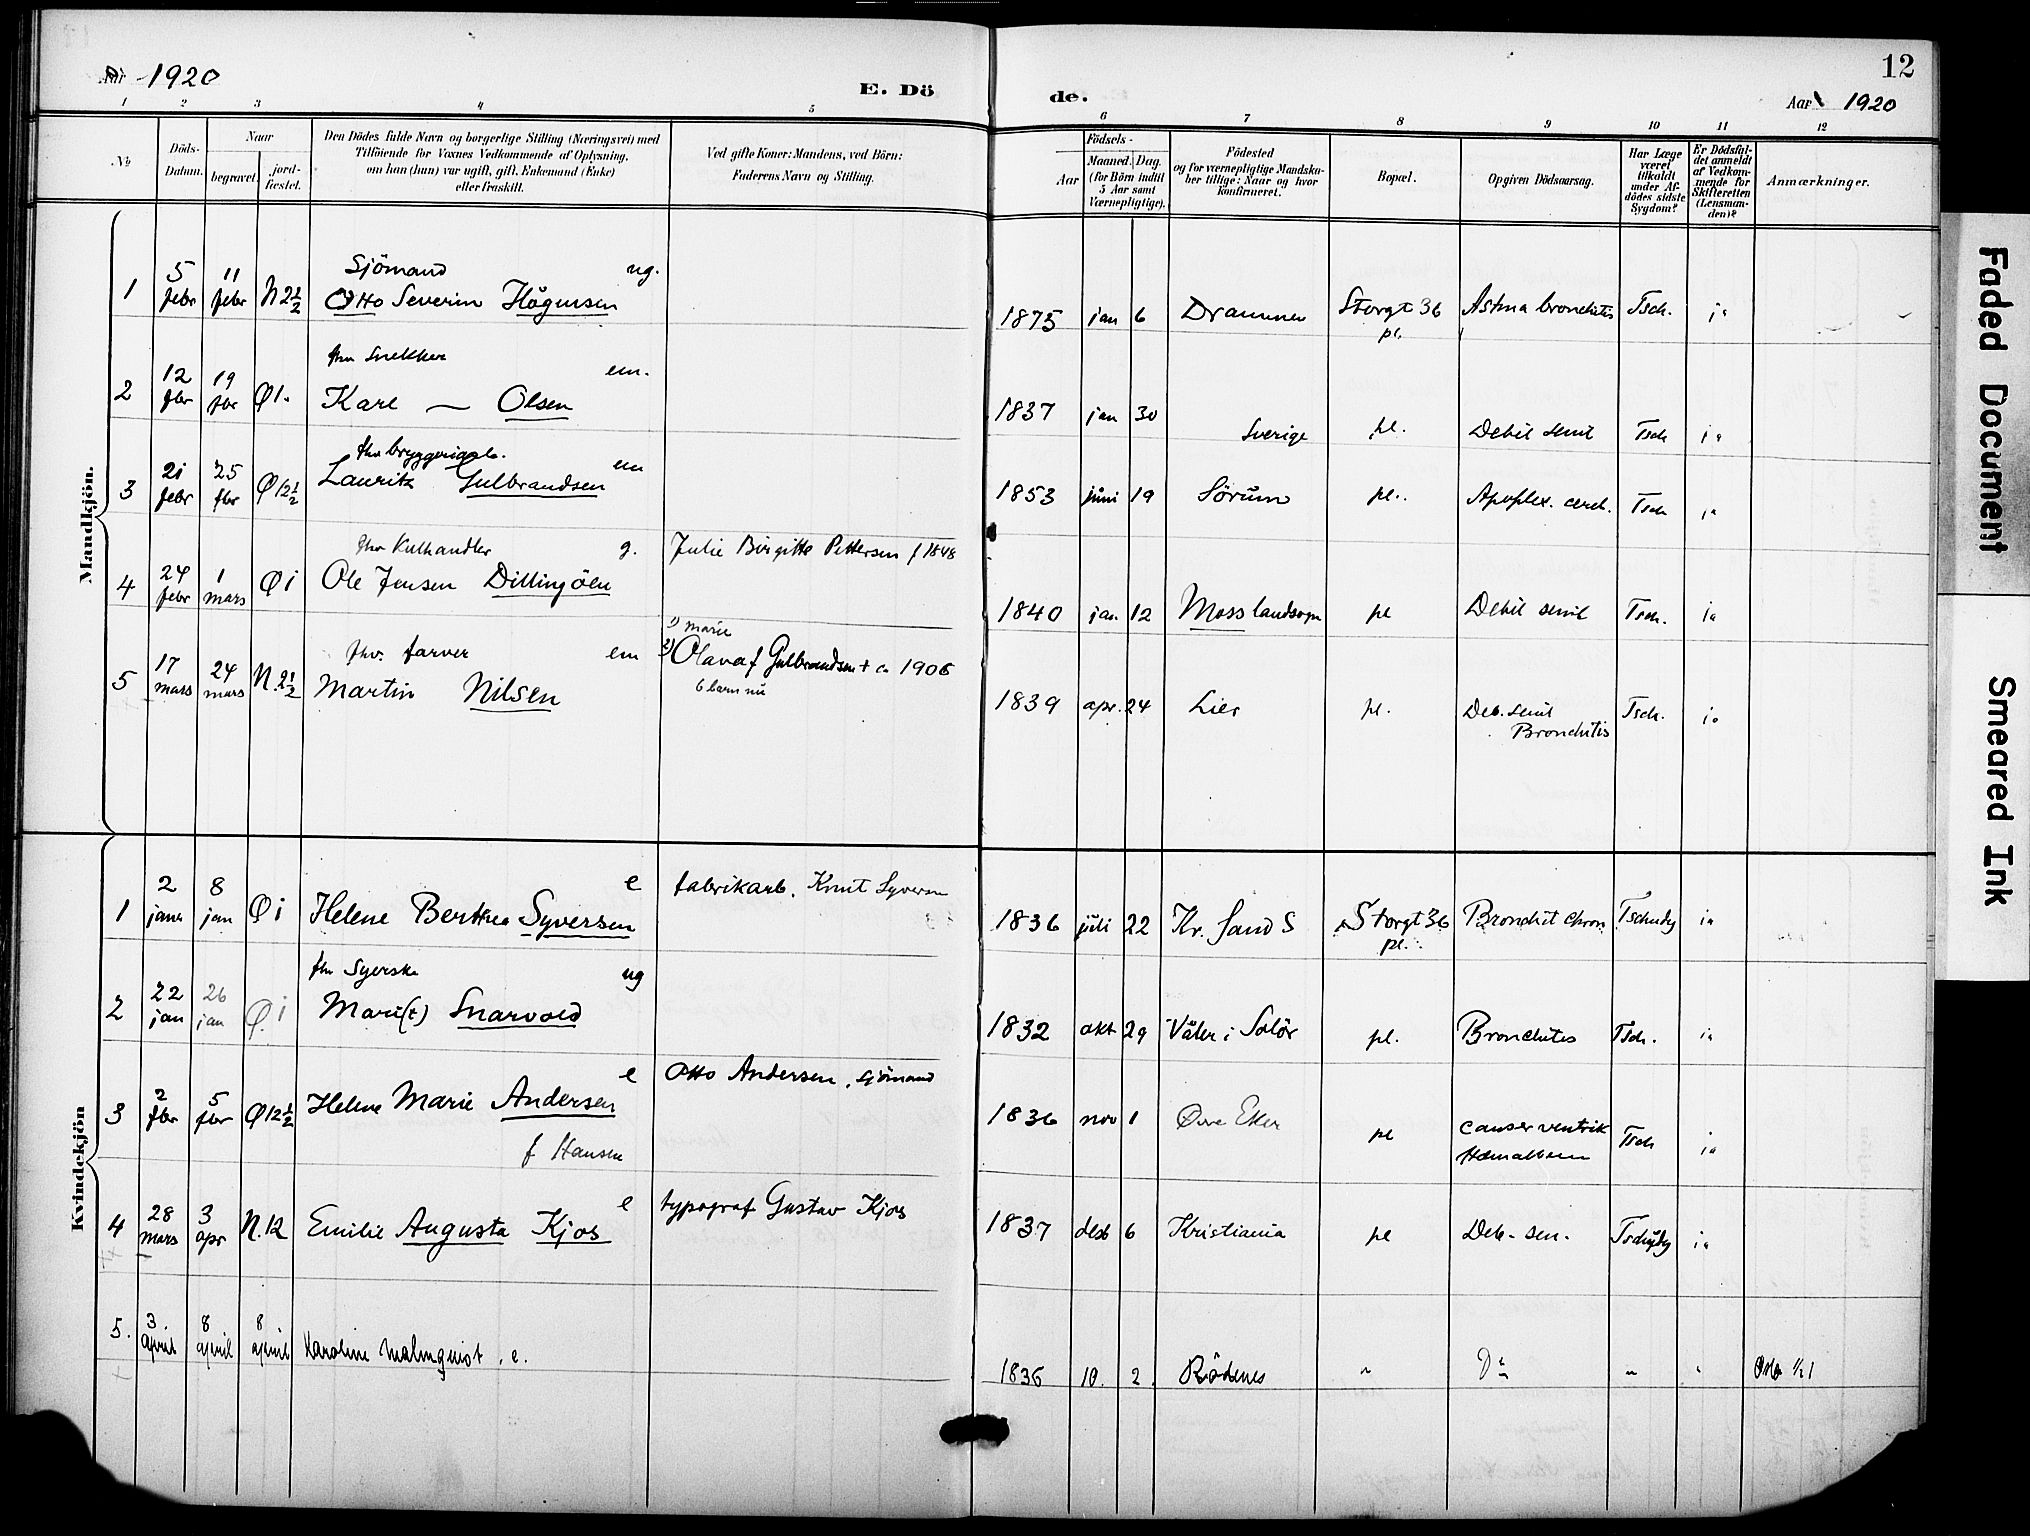 Aar 1920
E. Dö
de.
12
Aar 1920
1 2 3 4 5
6 7 8 9 10 11 12
№
Döds-
Datum.
Naar
begravet.
jord-
fæstet.
Den Dödes fulde Navn og borgerlige Stilling (Næringsvei) med
Tilföiende for Voxnes Vedkommende af Oplysning,
om han (hun) var ugift, gift, Enkemand (Enke)
eller fraskilt.
Ved gifte Koner: Mandens, ved Börn:
Faderens Navn og Stilling.
Födsels-
Aar
Maaned. Dag.
(for Börn indtil
5 Aar samt
Værnepligtige).
Födested
og for værnepligtige Mandska-
ber tillige: Naar og hvor
konfirmeret.
Bopæl.
Opgiven Dödsaarsag.
Har Læge
været
tilkaldt
under Af-
dödes sidste
Sygdom?
Er Dödsfal-
det anmeldt
af Vedkom-
mende for
Skifteretten
(Lensman-
den)?
Anmærkninger.
Mandkjön.
1 5 febr 11 febr N 2½ Sjömand ug.
Otto Severin Högensen
1875 jan 6 Drammen Storgt 36 pl. Astma bronchitis Tsch. ja
2 12 fbr 19 fbr Ø 1. fhv Snekker em.
Karl — Olsen
1837 jan 30 Sverige pl. Debil senil Tsch ja
3 21 febr 25 fbr Ø 12½ fhv bryggeriarb. em
Lauritz Gulbrandsen
1853 juni 19 Sörum pl. Apoplex. cereb. Tsch ja
4 24 febr 1 mars Ø 1 fhv Kulhandler g. Julie Birgitte Pettersen f 1848
Ole Jensen Dillingöen
1840 jan. 12 Moss landsogn pl Debil senil Tsch. ja
5 17 mars 24 mars N. 2½ fhv. farver em 1) Marie
2) Olava f Gulbrandsen + ca 1906
Martin Nilsen 6 barn nu
1839 apr. 24 Lier pl. Deb. senil
Bronchitis Tsch. ja
Kvindekjön
1 2 janr 8 jan Ø 1 e fabrikarb. Knut Syversen
Helene Berthea Syversen
1836 juli 22 Kr. sand S Storgt 36 pl. Bronchit chron Tschudy ja
2 22 jan 26 jan Ø. 1 fhv Syerske ug
Mari(t) Snarvold
1832 okt 29 Våler i Solör pl. Bronchitis Tsch. ja
3 2 fbr 5 fbr Ø 12½ e Otto Andersen, sjömand
Helene Marie Andersen
f Hansen
1836 nov 1 Övre Eker pl Cancer ventrik
Tsch ja
4 28 mars 3 apr N. 12 e typograf Gustav Kjos
Emilie Augusta Kjos
1837 des 6 Kristiania pl Deb. sen. Tschudy ja
5. 3. april 8 april 8 april Karoline Malmquist. e.
1836 10. 2. Rödenes " Do " "
Faded Document
Smeared Ink